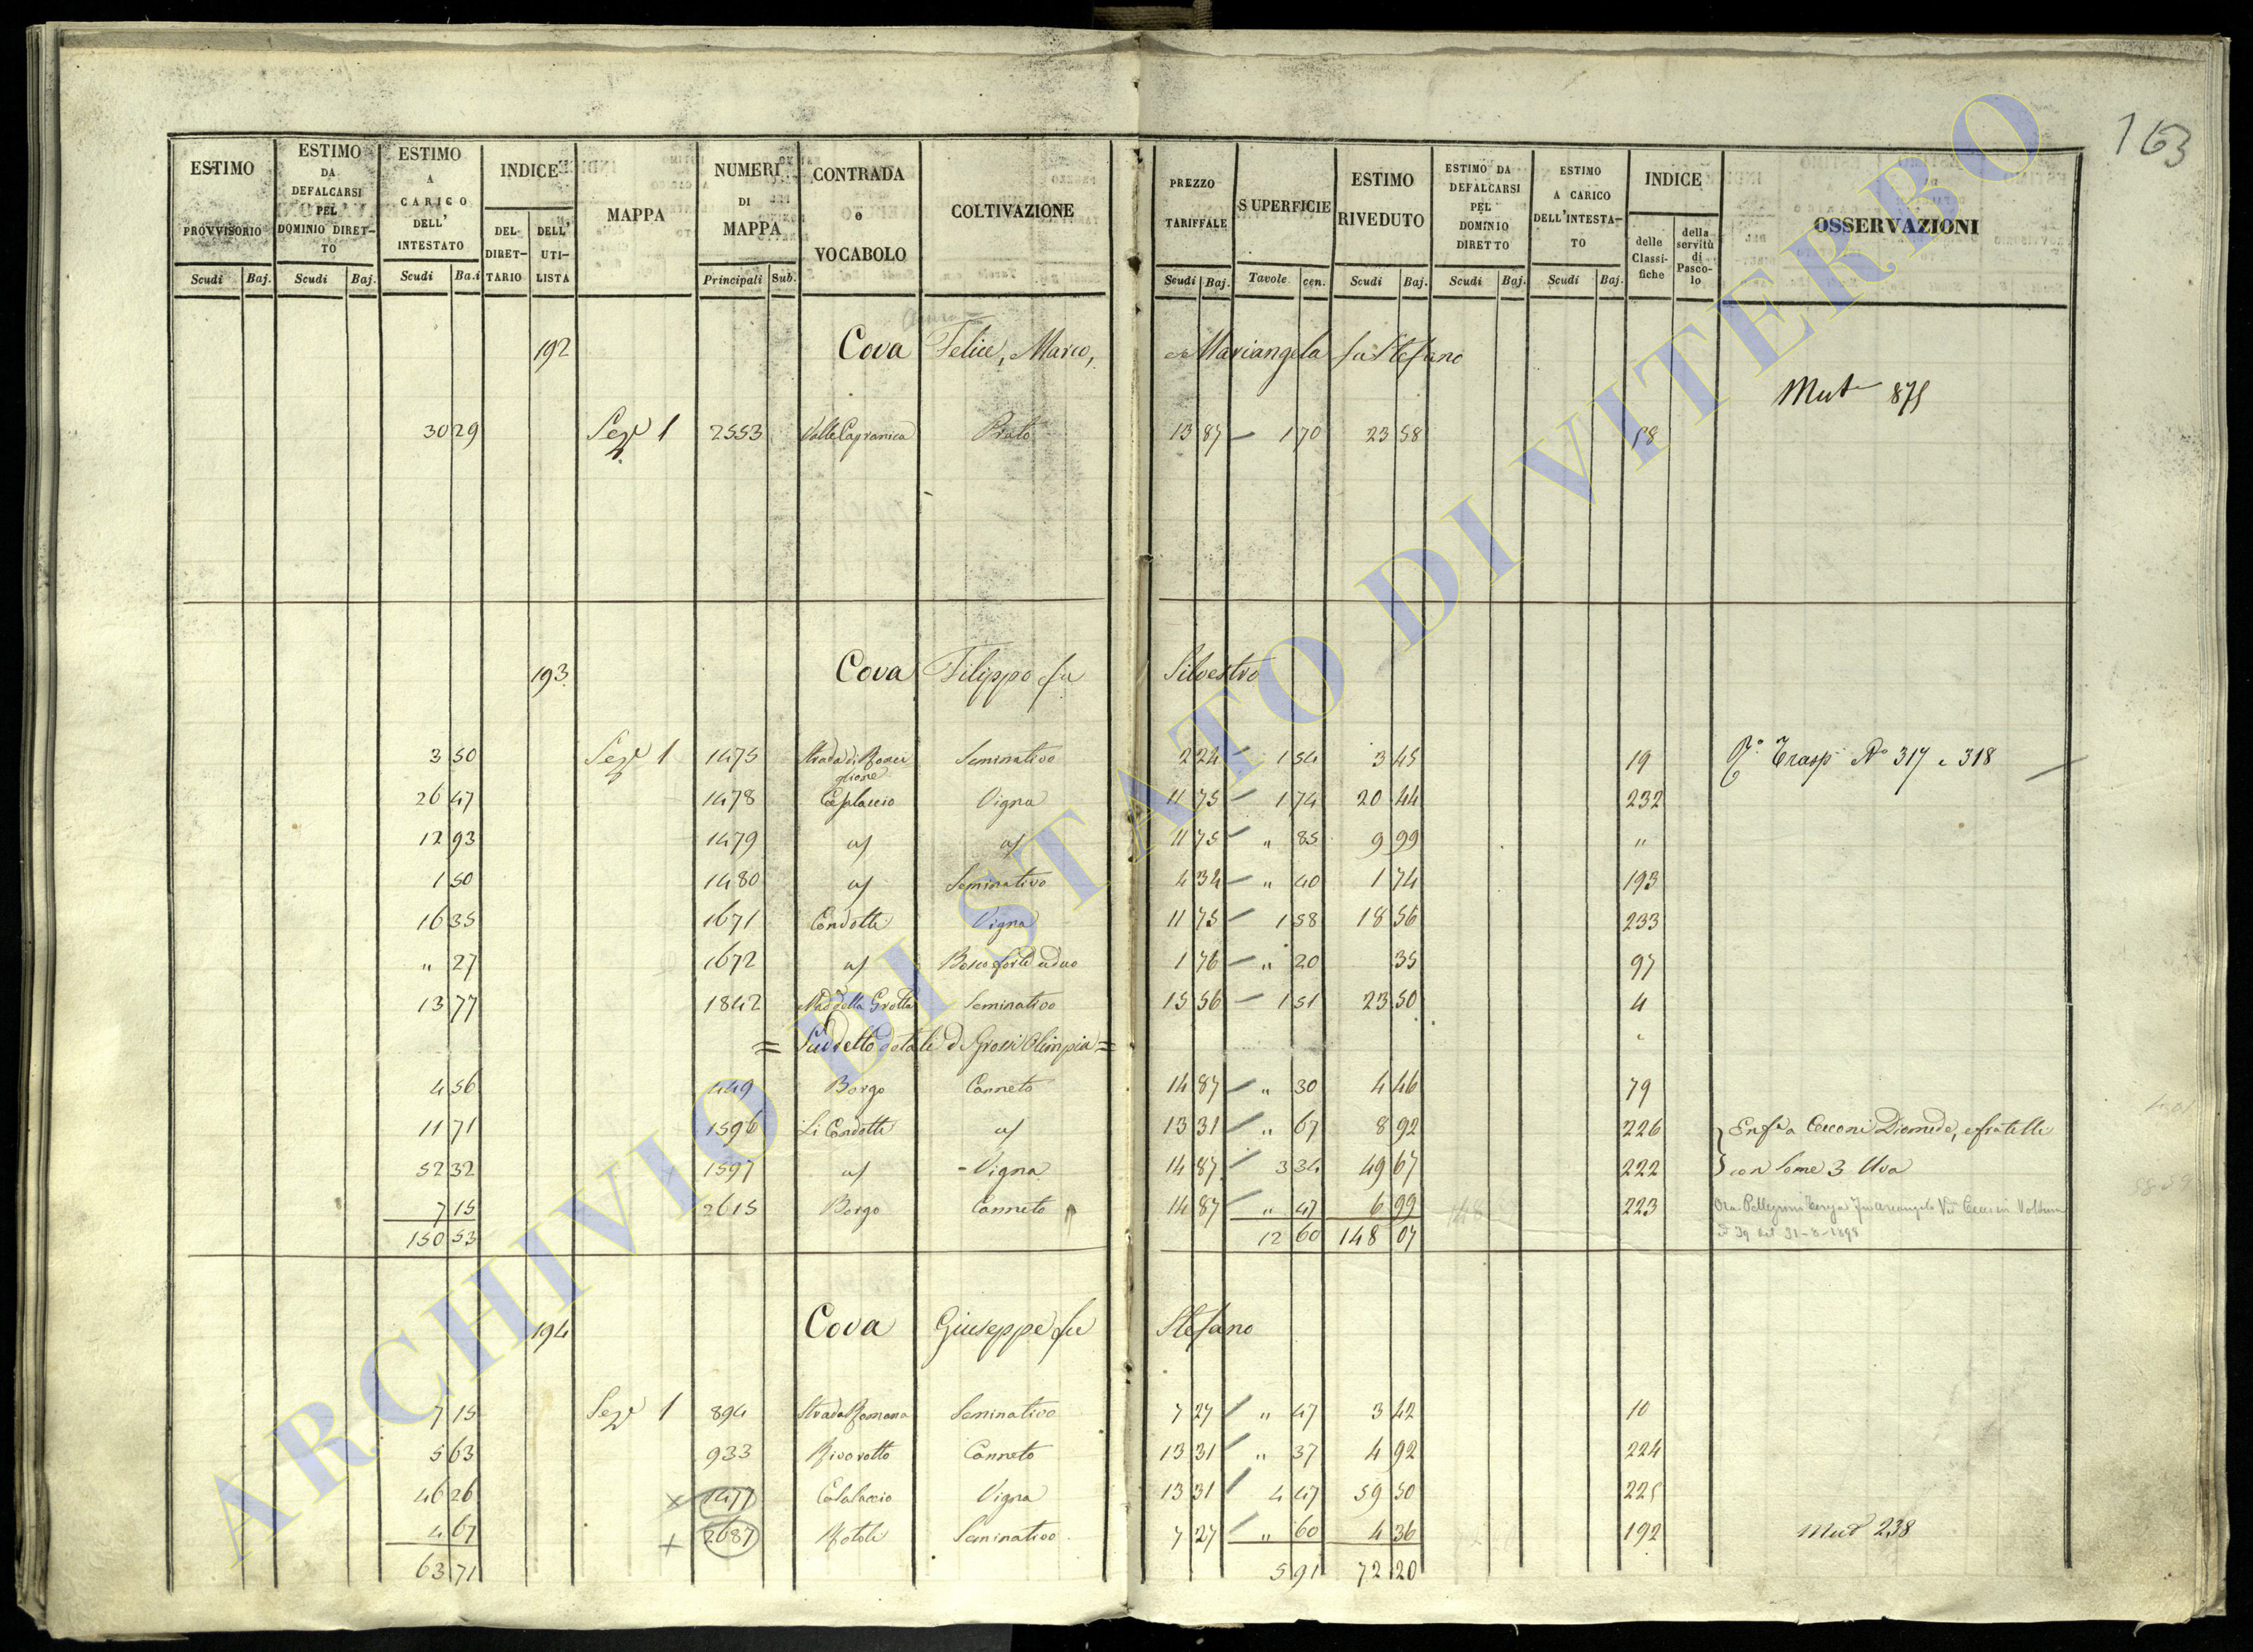 163
ESTIMO PROVVISORIO Scudi Baj.
ESTIMO DA DEFALCARSI PEL DOMINIO DIRETTO Scudi Baj.
ESTIMO A CARICO DELL' INTESTATO Scudi Ba.i
INDICE DEL DIRETTARIO DELL' UTILISTA
MAPPA
NUMERI DI MAPPA Principali Sub.
CONTRADA o VOCABOLO
COLTIVAZIONE
PREZZO TARIFFALE Scudi Baj.
SUPERFICIE Tavole cen.
ESTIMO RIVEDUTO Scudi Baj.
ESTIMO DA DEFALCARSI PEL DOMINIO DIRETTO Scudi Baj.
ESTIMO A CARICO DELL'INTESTATO Scudi Baj.
INDICE delle Classifiche della servitù di Pascolo
OSSERVAZIONI
192 Cova Felice, Marco, e Mariangela fu Stefano
Mut 875
30 29 Sez 1 2553 Valle Capranica Prato 13 87 1 70 23 58 58
193 Cova Filippo fu Silvestro
3 50 Sez 1 1475 Strada di Ronciglione Seminativo 2 24 1 54 3 45 19 Trasp No 317 e 318
26 47 1478 Vigna 11 75 1 74 20 44 232
12 93 1479 11 75 " 85 9 99 "
1 50 1480 Seminativo 4 34 " 40 1 74 193
16 35 1671 Condotti Vigna 11 75 1 58 18 56 233
" 27 1672 Bosco forte ceduo 1 76 " 20 35 97
13 77 1842 Mad della Grotta Seminativo 15 56 1 51 23 50 4
= Suddetto dotale di Grossi Olimpia =
4 56 449 Borgo Canneto 14 87 " 30 4 46 79
11 71 1596 Li Condotti 13 31 " 67 8 92 226 Enfa Cecconi Diomede, e fratelli
52 32 1597 Vigna 14 87 3 34 49 67 222 con Some 3 Uva
7 15 2615 Borgo Canneto 14 87 " 47 6 99 223 Ora Pellegrini
150 53 12 60 148 07 39 del 31-8-1898
194 Cova Giuseppe fu Stefano
7 15 Sez 1 894 Strada Romana Seminativo 7 27 " 47 3 42 10
5 63 933 Rivorotto Canneto 13 31 " 37 4 92 224
46 26 x 1477 Vigna 13 31 4 47 59 50 225
4 67 + 2687 Rotoli Seminativo 7 27 " 60 4 36 192 Mut 238
63 71 5 91 72 20
ARCHIVIO DI STATO DI VITERBO